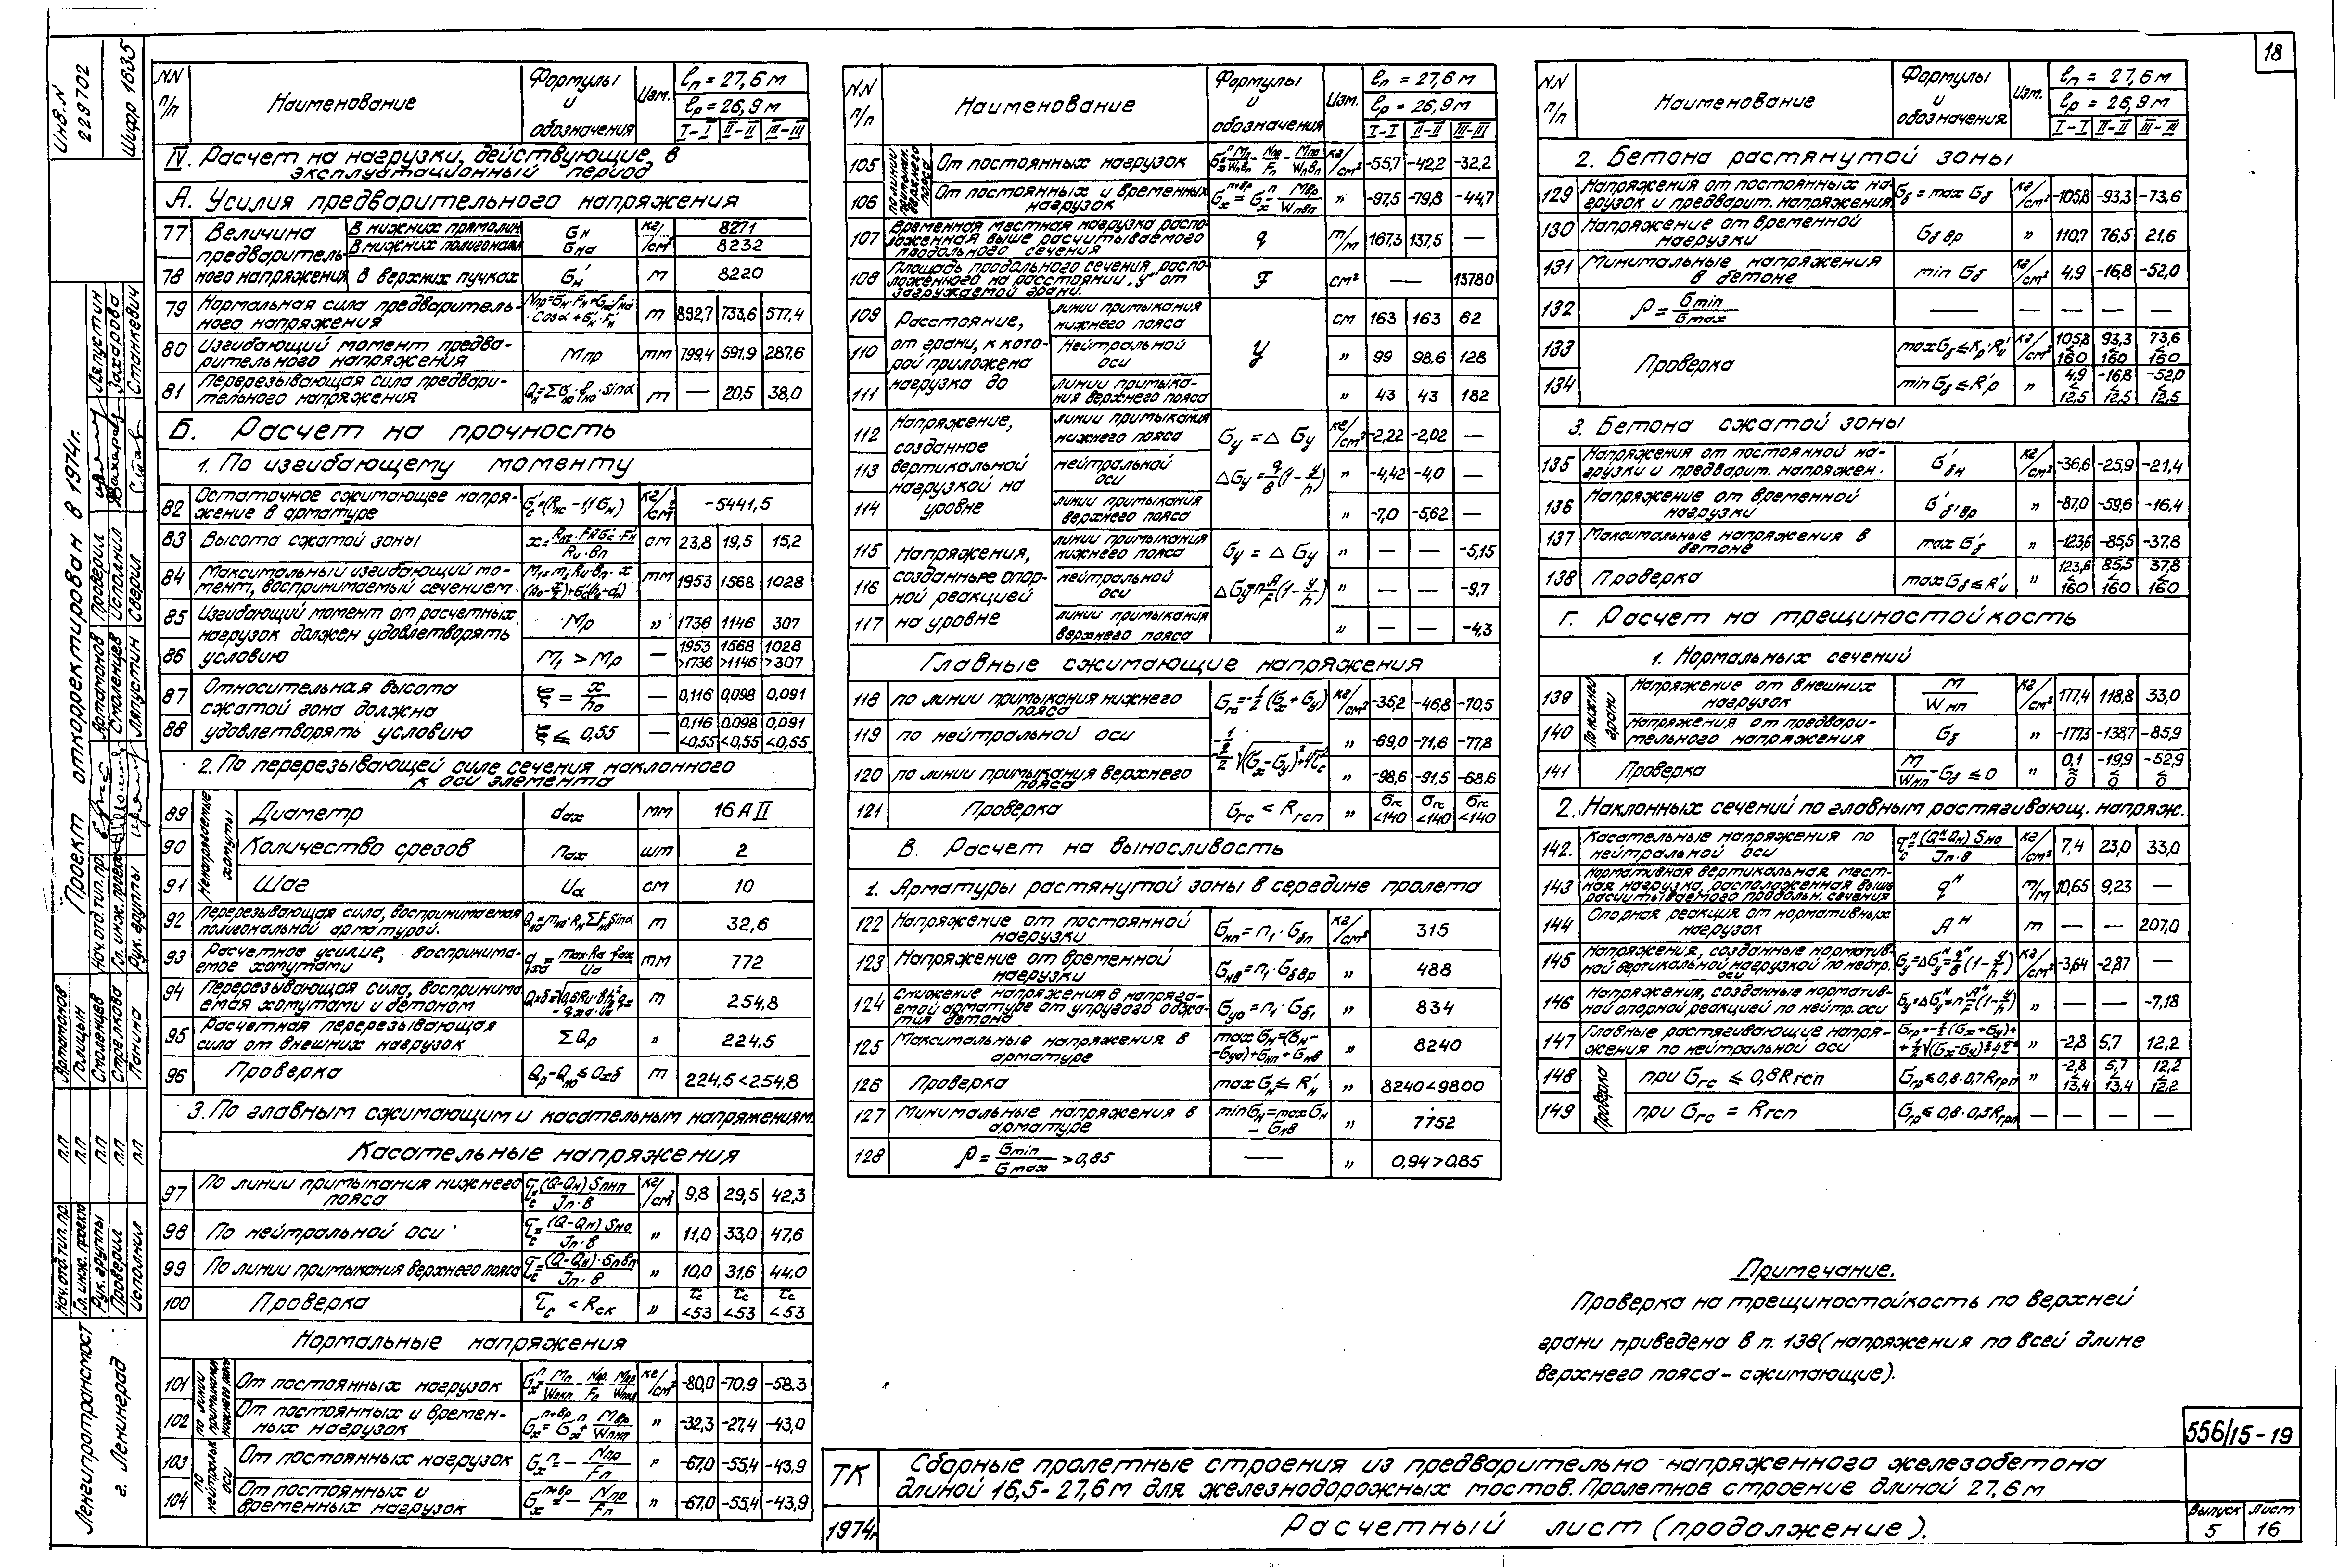 18
Инв.N
229702
Шифр 1635
Проект откорректирован в 1974г.
Нач.отд.тип.пр. Артамонов Проверил Ляпустин
Гл.инж.проек. Исполнил Захарова
Рук.группы Ляпустин Сверил Станкевич
Нач.отд.тип.пр. п.п Артамонов
Гл.инж.проекта п.п Голицын
Рук.группы п.п Смоленцев
Проверил п.п Стрелкова
Исполнил п.п Панина
Ленгипротрансмост
г. Ленинград
NN п/п Наименование Формулы и обозначения Изм. ℓп = 27,6 м
ℓр = 26,9 м
I-I II-II III-III
IV. Расчет на нагрузки, действующие в
эксплуатационный период
А. Усилия предварительного напряжения
77 Величина В нижних прямолин. Gн кг/см² 8271
предваритель- В нижних полигональн. Gна 8232
78 ного напряжения в верхних пучках G'н т 8220
79 Нормальная сила предваритель-
ного напряжения т 892,7 733,6 577,4
80 Изгибающий момент предва-
рительного напряжения Мпр тм 799,4 591,9 287,6
81 Перерезывающая сила предвари-
тельного напряжения т — 20,5 38,0
Б. Расчет на прочность
1. По изгибающему моменту
82 Остаточное сжимающее напря-
жение в арматуре G'c=(Rнс-1,1Gн) кг/см² -5441,5
83 Высота сжатой зоны см 23,8 19,5 15,2
84 Максимальный изгибающий мо-
мент, воспринимаемый сечением тм 1953 1568 1028
85 Изгибающий момент от расчетных Мр „ 1736 1146 307
нагрузок должен удовлетворять
86 условию М₁ > Мр — 1953>1736 1568>1146 1028>307
87 Относительная высота ξ = x/h₀ — 0,116 0,098 0,091
сжатой зона должна
88 удовлетворять условию ξ ≤ 0,55 — 0,116<0,55 0,098<0,55 0,091<0,55
2. По перерезывающей силе сечения наклонного
к оси элемента
Ненапрягаемые хомуты
89 Диаметр dах мм 16 А II
90 Количество срезов nах шт 2
91 Шаг Uа см 10
92 Перерезывающая сила, воспринимаемая
полигональной арматурой. т 32,6
93 Расчетное усилие, воспринима-
емое хомутами тм 772
94 Перерезывающая сила, воспринима
емая хомутами и бетоном т 254,8
95 Расчетная перерезывающая
сила от внешних нагрузок ΣQр „ 224,5
96 Проверка Qр-Qно ≤ Qхб т 224,5<254,8
3. По главным сжимающим и касательным напряжениям
Касательные напряжения
97 По линии примыкания нижнего
пояса τс=(Q-Qн)Sпнп/Jп·в кг/см² 9,8 29,5 42,3
98 По нейтральной оси τс=(Q-Qн)Sно/Jп·в „ 11,0 33,0 47,6
99 По линии примыкания верхнего пояса τс=(Q-Qн)·Sпвп/Jп·в „ 10,0 31,6 44,0
100 Проверка τс < Rск „ τс<53 τс<53 τс<53
Нормальные напряжения
по линии примыкания нижнего пояса
101 От постоянных нагрузок кг/см² -80,0 -70,9 -58,3
102 От постоянных и времен-
ных нагрузок „ -32,3 -27,4 -43,0
по нейтральн. оси
103 От постоянных нагрузок Gxп=-Nпр/Fп „ -67,0 -55,4 -43,9
104 От постоянных и
временных нагрузок Gxп+вр=-Nпр/Fп „ -67,0 -55,4 -43,9
NN п/п Наименование Формулы и обозначения Изм. ℓп = 27,6 м
ℓр = 26,9 м
I-I II-II III-III
по линии примыкан. верхнего пояса
105 От постоянных нагрузок кг/см² -55,7 -42,2 -32,2
106 От постоянных и временных
нагрузок „ -97,5 -79,8 -44,7
107 Временная местная нагрузка распо-
ложенная выше расчитываемого
продольного сечения q т/м 167,3 137,5 —
108 Площадь продольного сечения распо-
ложенного на расстоянии „у" от
загружаемой грани. F см² — 13780
109 Расстояние, линии примыкания нижнего пояса см 163 163 62
110 от грани, к кото- Нейтральной оси У „ 99 98,6 128
рой приложена
111 нагрузка до линии примыка-ния верхнего пояса „ 43 43 182
112 Напряжение, линии примыкания нижнего пояса Gу = Δ Gу кг/см² -2,22 -2,02 —
созданное
113 вертикальной нейтральной оси ΔGу=q/в(1-у/h) „ -4,42 -4,0 —
нагрузкой на
114 уровне линии примыкания верхнего пояса „ -7,0 -5,62 —
115 Напряжения, линии примыкания нижнего пояса Gу = Δ Gу „ — — -5,15
116 созданные опор- нейтральной оси ΔGу=nA/F(1-у/h) „ — — -9,7
ной реакцией
117 на уровне линии примыкания верхнего пояса „ — — -4,3
Главные сжимающие напряжения
118 по линии примыкания нижнего
пояса Gгс=-½(Gх+Gу) кг/см² -35,2 -46,8 -70,5
119 по нейтральной оси „ -69,0 -71,6 -77,8
120 по линии примыкания верхнего
пояса „ -98,6 -91,5 -68,6
121 Проверка Gгс < Rгсп „ σгс<140 σгс<140 σгс<140
В. Расчет на выносливость
1. Арматуры растянутой зоны в середине пролета
122 Напряжение от постоянной
нагрузки Gнп=n₁·Gбп кг/см² 315
123 Напряжение от временной
нагрузки Gнв=n₁·Gбвр „ 488
124 Снижение напряжения в напряга-
емой арматуре от упругого обжа-
тия бетона Gуа=n₁·Gб₁ „ 834
125 Максимальные напряжения в
арматуре maxGн=(Gн-
-Gуа)+Gнп+Gнв „ 8240
126 Проверка maxGн≤R'н „ 8240<9800
127 Минимальные напряжения в
арматуре minGн=maxGн
- Gнв „ 7752
128 ρ = Gmin/Gmax >0,85 — „ 0,94>0,85
NN п/п Наименование Формулы и обозначения Изм. ℓп = 27,6 м
ℓр = 26,9 м
I-I II-II III-III
2. Бетона растянутой зоны
129 Напряжения от постоянных на-
грузок и предварит. напряжения. Gб = max Gб кг/см² -105,8 -93,3 -73,6
130 Напряжение от временной
нагрузки Gб вр „ 110,7 76,5 21,6
131 Минимальные напряжения
в бетоне min Gб кг/см² 4,9 -16,8 -52,0
132 ρ = Gmin/Gmax — — — —
133 Проверка maxGб≤Kр·R'и кг/см² 105,8<160 93,3<160 73,6<160
134 minGб≤R'р „ 4,9<12,5 -16,8<12,5 -52,0<12,5
3. Бетона сжатой зоны
135 Напряжения от постоянной на-
грузки и предварит. напряжен. G'бн кг/см² -36,6 -25,9 -21,4
136 Напряжение от временной
нагрузки G'б'вр „ -87,0 -59,6 -16,4
137 Максимальные напряжения в
бетоне max G'б „ -123,6 -85,5 -37,8
138 Проверка maxGб≤R'и „ 123,6<160 85,5<160 37,8<160
Г. Расчет на трещиностойкость
1. Нормальных сечений
По нижней грани
139 Напряжение от внешних
нагрузок М/Wнп кг/см² 177,4 118,8 33,0
140 Напряжения от предвари-
тельного напряжения Gб „ -177,3 -138,7 -85,9
141 Проверка М/Wнп-Gб≤0 „ 0,1≈0 -19,9<0 -52,9<0
2. Наклонных сечений по главным растягивающ. напряж.
142. Касательные напряжения по
нейтральной оси кг/см² 7,4 23,0 33,0
143 Нормативная вертикальная мест-
ная нагрузка, расположенная выше
расчитываемого продольн. сечения qн т/м 10,65 9,23 —
144 Опорная реакция от нормативных
нагрузок Aн т — — 207,0
145 Напряжения, созданные норматив-
ной вертикальной нагрузкой по нейтр.
оси кг/см² -3,64 -2,87 —
146 Напряжения, созданные норматив-
ной опорной реакцией по нейтр. оси „ — — -7,18
147 Главные растягивающие напря-
жения по нейтральной оси „ -2,8 5,7 12,2
Проверка
148 при Gгс ≤ 0,8Rгсп Gгр≤0,8·0,7Rгрп „ -2,8<13,4 5,7<13,4 12,2<12,2
149 при Gгс = Rгсп Gгр≤0,8·0,5Rгрп — — — —
Примечание.
Проверка на трещиностойкость по верхней
грани приведена в п. 138 (напряжения по всей длине
верхнего пояса - сжимающие).
556/15-19
ТК Сборные пролетные строения из предварительно напряженного железобетона
длиной 16,5-27,6 м для железнодорожных мостов. Пролетное строение длиной 27,6 м
1974г Расчетный лист (продолжение).
Выпуск 5 Лист 16